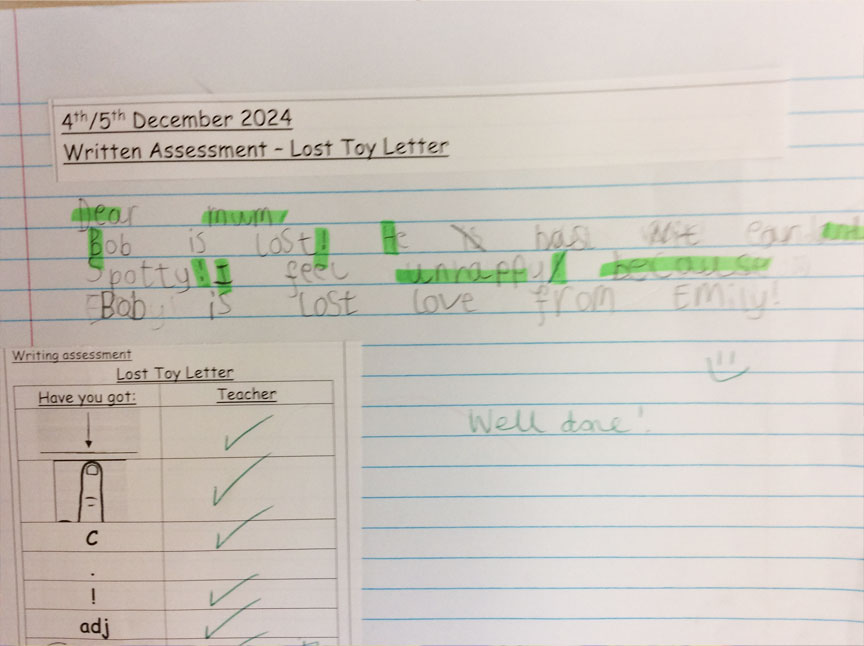 4th/5th December 2024
Written Assessment - Lost Toy Letter
Dear mum,
Bob is lost! He is has ear and
Spotty! I feel unhappy! because
Bob is Lost love from Emily!
Writing assessment
Lost Toy Letter
Have you got: Teacher
C
.
!
adj
Well done!